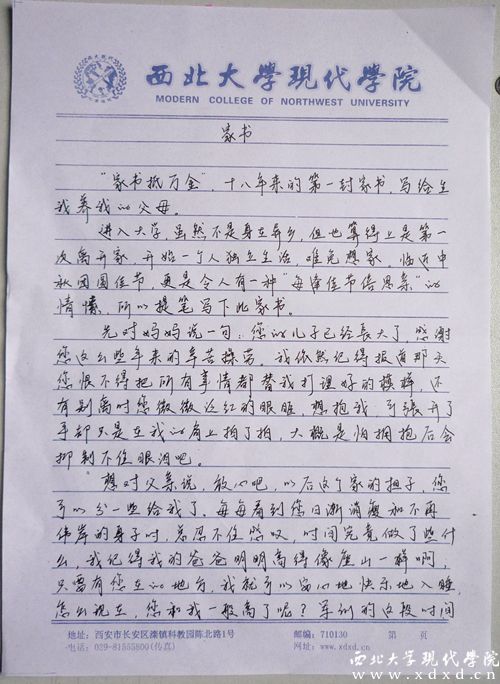 西北大学现代学院
MODERN COLLEGE OF NORTHWEST UNIVERSITY
家书
“家书抵万金”，十八年来的第一封家书，写给生
我养我的父母。
进入大学虽然不是身在异乡，但也算得上是第一
次离开家，开始一个人独立生活，难免想家，临近中
秋团圆佳节，更是令人有一种“每逢佳节倍思亲”的
情愫，所以提笔写下此家书。
先对妈妈说一句：您的儿子已经长大了，感谢
您这么些年来的辛苦操劳。我依然记得报道那天
您恨不得把所有事情都替我打理好的模样，还
有别离时您微微泛红的眼眶，想抱我，可张开了
手却只是在我的肩上拍了拍，大概是怕拥抱后会
抑制不住眼泪吧。
想对父亲说，放心吧，以后这个家的担子，您
可以分一些给我了。每每看到您日渐消瘦和不再
伟岸的身子时，总忍不住感叹，时间究竟做了些什
么，我记得我的爸爸明明高得像座山一样啊，
只要有您在的地方，我就可以安心地快乐地入睡，
怎么现在，您和我一般高了呢？军训的这段时间
地址：西安市长安区滦镇科教园陈北路1号 邮编：710130 第 页
电话：029-81555800(传真) 网址：www.xdxd.cn
西北大学现代学院
www.xdxd.cn